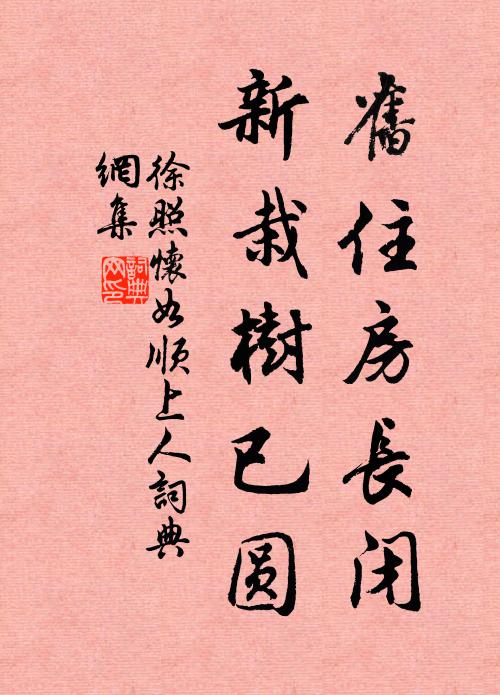 舊住房長閉
新栽樹已圆
徐照懷如順上人詞典
網集
詞典
网印